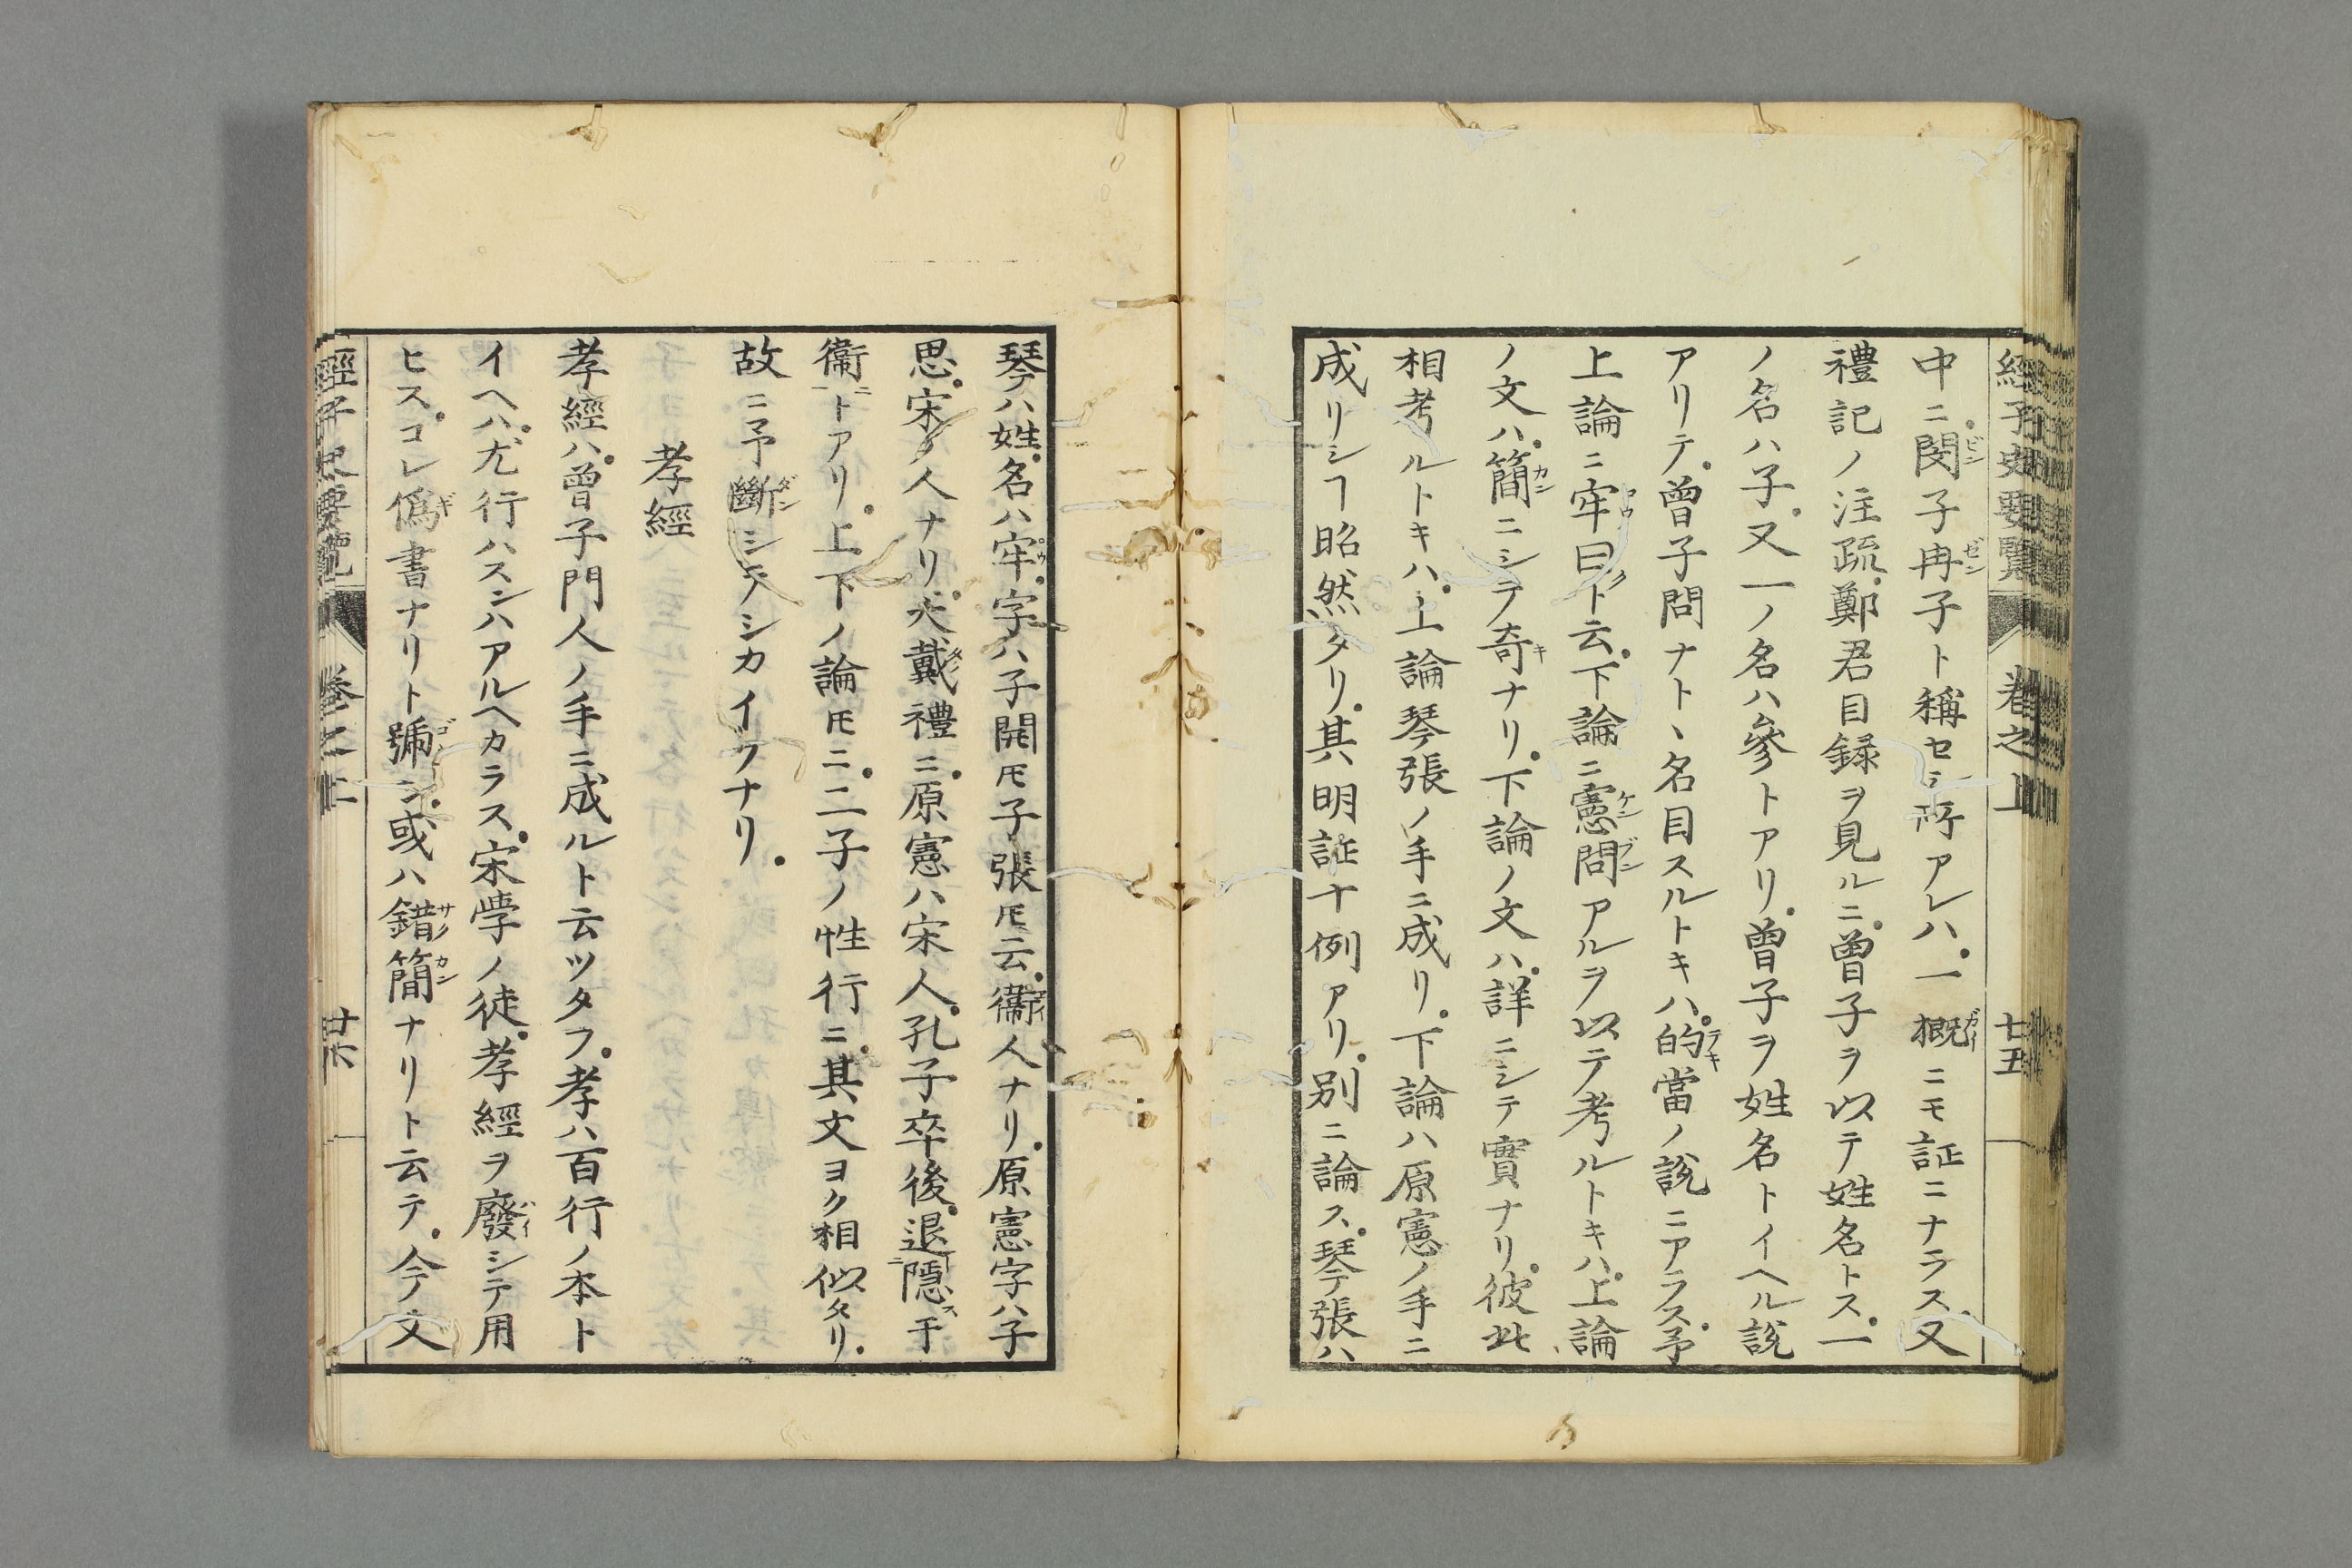 經子史要覽 卷之上 七五
中ニ閔子冉子ト稱セシ所アレハ。一概ニモ証ニナラス。又
禮記ノ注疏。鄭君目録ヲ見ルニ。曽子ヲ以テ姓名トス。一
ノ名ハ子。又一ノ名ハ參トアリ。曽子ヲ姓名トイヘル説
アリテ。曽子問ナトヽ名目スルトキハ。的當ノ説ニアラス。予
上論ニ牢曰ト云。下論ニ憲問アルヲ以テ考ルトキハ。上論
ノ文ハ。簡ニシテ奇ナリ。下論ノ文ハ。詳ニシテ實ナリ。彼此
相考ルトキハ。上論琴張ノ手ニ成リ。下論ハ原憲ノ手ニ
成リシヿ昭然タリ。其明証十例アリ。別ニ論ス。琴張ハ
琴ハ姓。名ハ牢。字ハ子開𪜈子張𪜈云。衞人ナリ。原憲字ハ子
思。宋ノ人ナリ。大戴禮ニ。原憲ハ宋人。孔子卒後。退隱于
衞トアリ。上下ノ論𪜈ニ。二子ノ性行ニ。其文ヨク相似タリ。
故ニ予斷シテシカイフナリ。
孝經
孝經ハ。曽子門人ノ手ニ成ルト云ツタフ。孝ハ百行ノ本ト
イヘハ。尤行ハスンハアルヘカラス。宋学ノ徒。孝經ヲ廢シテ用
ヒス。コレ僞書ナリト號シ。或ハ錯簡ナリト云テ。今文
經子史要覽 卷之上 廿六